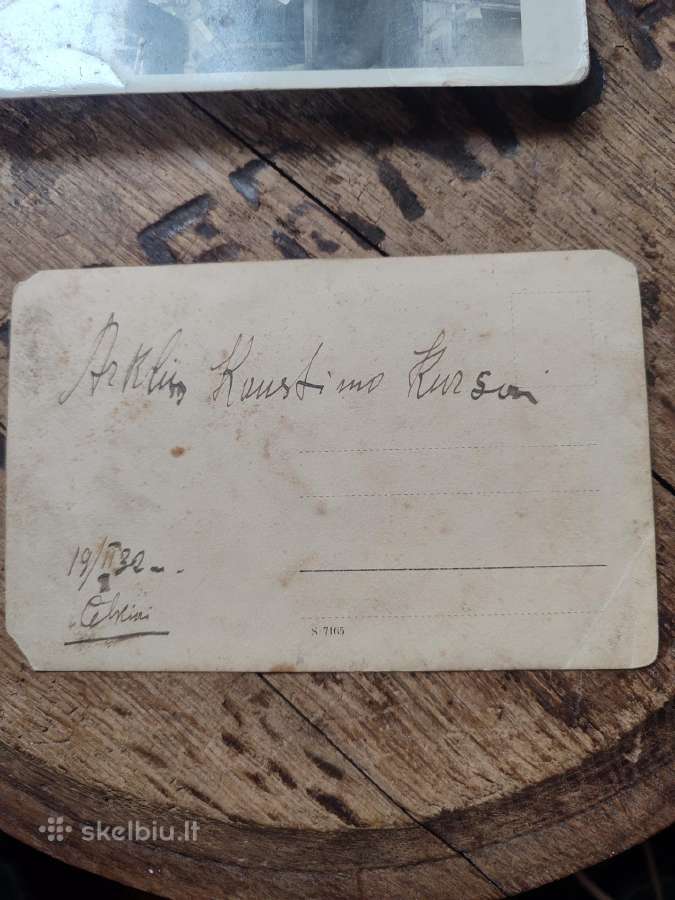 Arklių Kaustimo Kursai
19/II 32
S 7165
skelbiu.lt